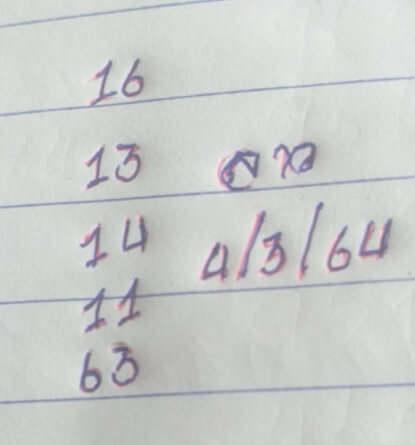 16
13
14 4/3/64
11
63